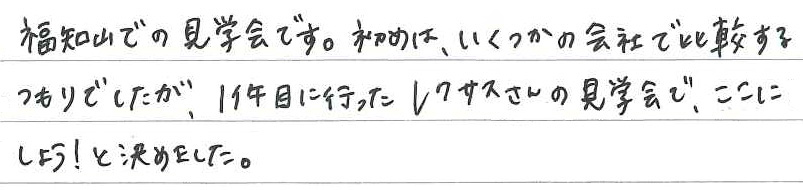 福知山での見学会です。初めは、いくつかの会社で比較する
つもりでしたが、1件目に行ったレクサスさんの見学会で、ここに
しよう!と決めました。